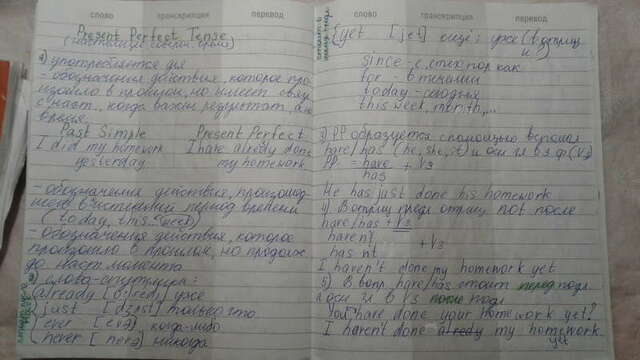 слово транскрипция перевод
Present Perfect Tense
(настоящее соверш. время)
1) употребляется для
- обозначения действия, которое про
изошло в прошлом, но имеет связь
с наст., когда важен результат, а не
время.
Past Simple Present Perfect
I did my homework I have already done
yesterday my homework
- обозначения действия, произошед
шего в истекший период времени
(today, this week)
- обозначения действия, которое
произошло в прошлом, но продолж
до наст. момента
2) слова-спутники:
already [o:lredi] уже
just [dʒʌst] только что
ever [evə] когда-либо
never [nevə] никогда
слово транскрипция перевод
yet [jet] ещё; уже (в отриц
и ?)
since - с, с тех пор как
for - в течении
today - сегодня
this week, month, ...
3) PP образуется с помощью вспом.
have/has (he, she, it) и осн. гл в 3 ф (V3)
PP. = have + V3
has
He has just done his homework
4) В отриц предл отриц not после
have/has + V3
haven't
hasn't + V3
I haven't done my homework yet
5) В вопр. have/has стоит перед подл
а осн гл в V3 после подл
You have done your homework yet?
I haven't done alredy my homework
yet